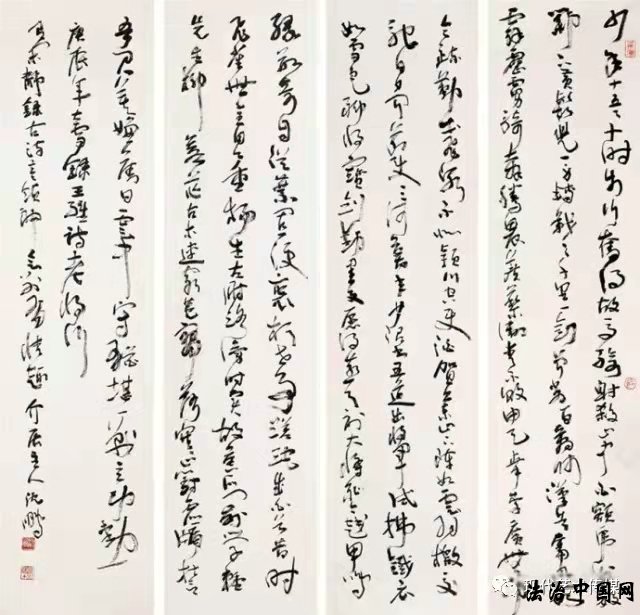 少年十五二十时步行夺得胡马骑射杀山中白额虎肯数
邺下黄须儿一身转战三千里一剑曾当百万师汉兵奋迅
霹雳虏骑奔腾畏蒺藜卫青不败由天幸李广无功
令疏勒出飞泉不似颍川空使酒贺兰山下阵如云羽檄交
驰日夕闻节使三河募年少诏书五道出将军试拂铁衣
如雪色聊持宝剑动星文愿得燕弓射大将耻令越甲鸣
缘数奇自从弃置便衰朽世事蹉跎成白首昔时
飞箭无全目今日垂杨生左肘路旁时卖故侯瓜门前学种
先生柳苍茫古木连穷巷寥落寒山对虚牖誓
吾君莫嫌旧日云中守犹堪一战立功勋
庚辰年书录王维诗老将行
静录古诗意领神会别有佳趣 介居主人沈鹏
法治中国网